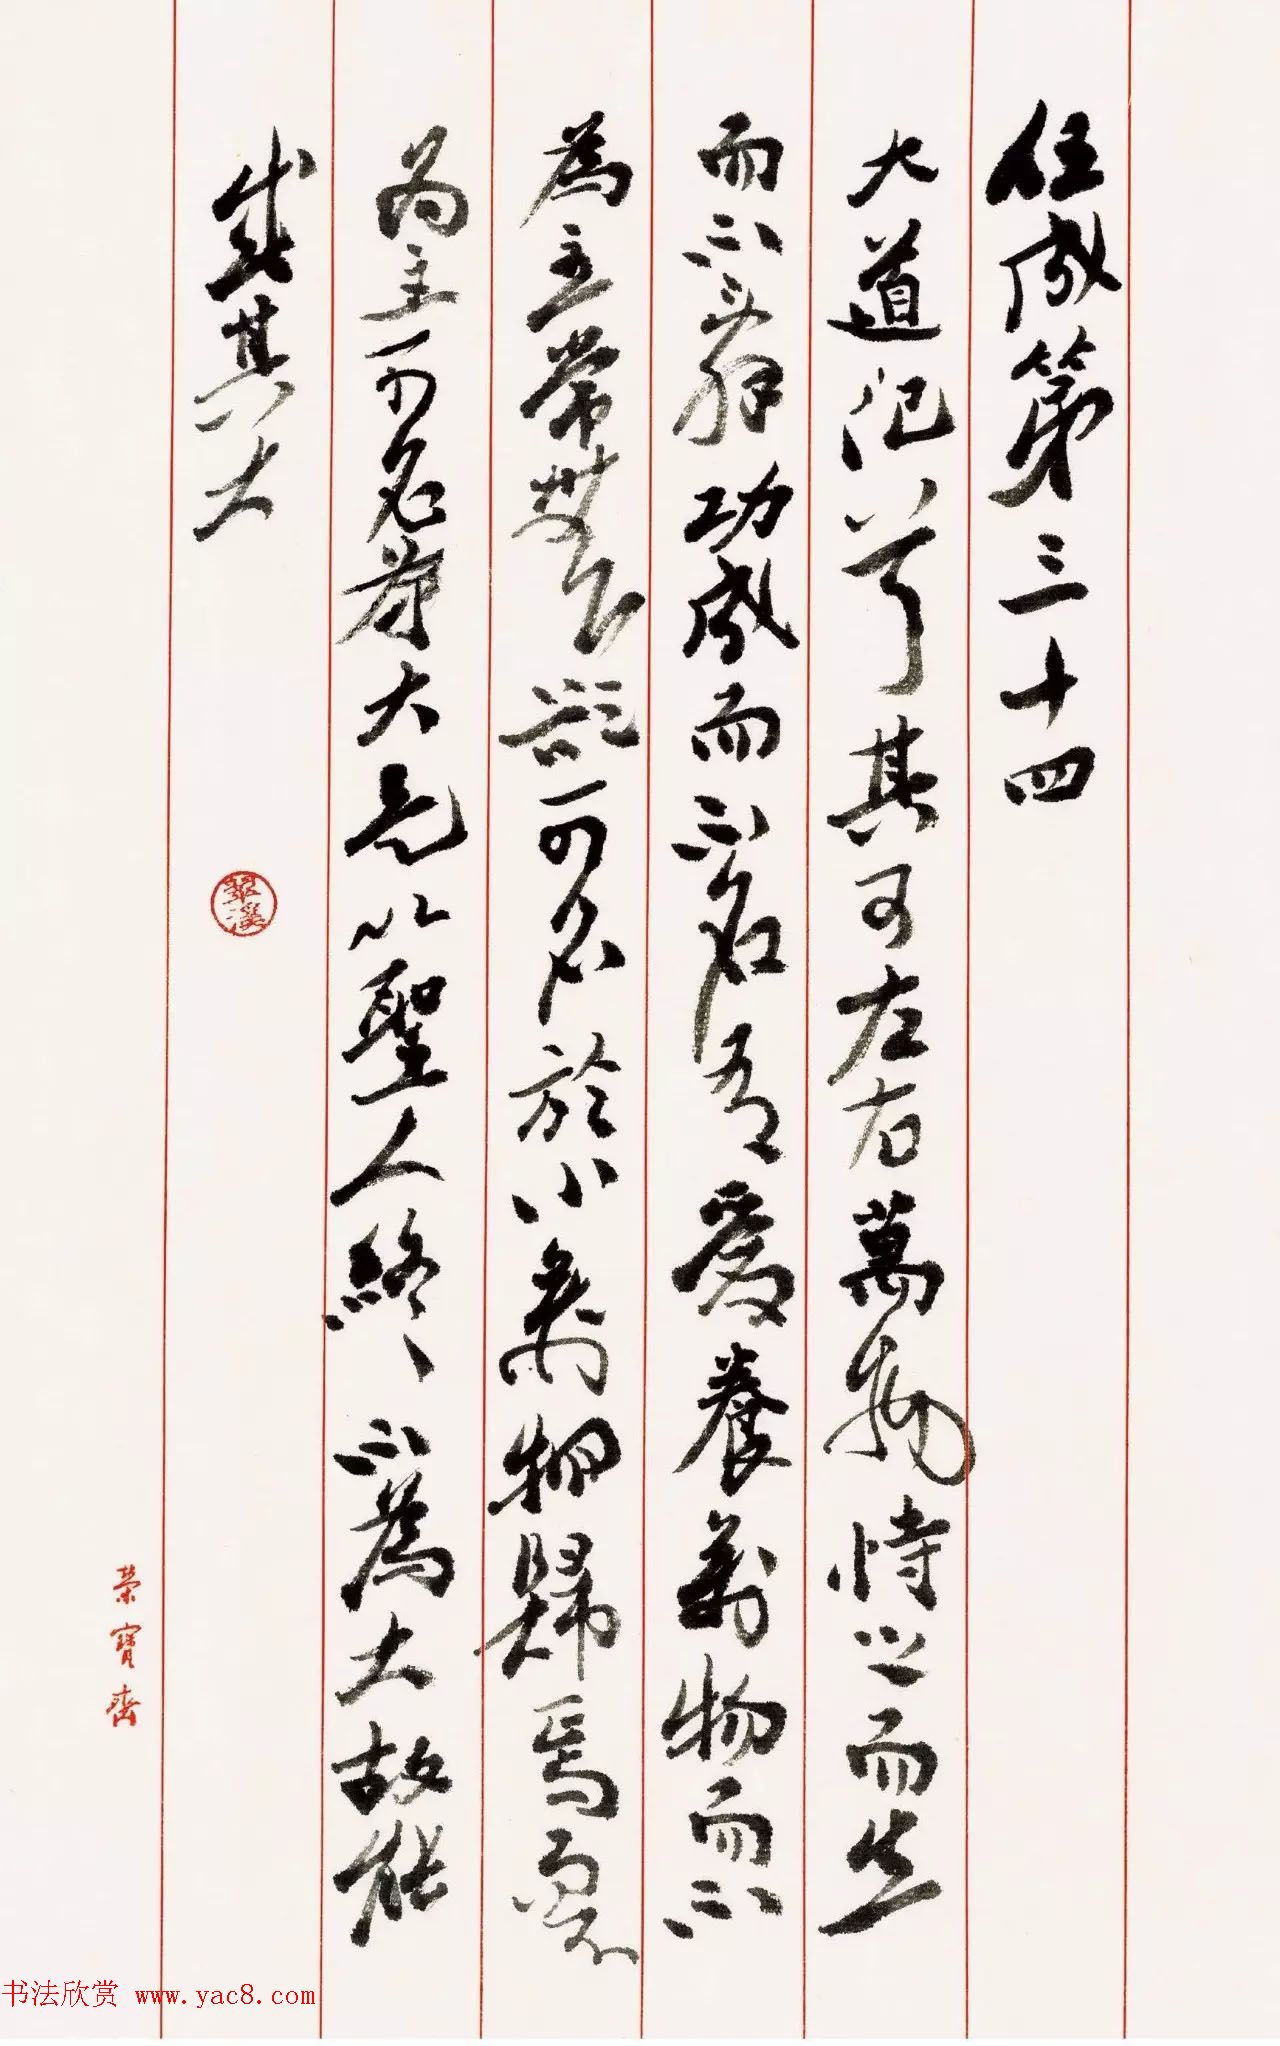 任成第三十四
大道汜兮其可左右萬物恃之而生
而不辭功成而不名有愛養萬物而不
為主常無欲可名於小萬物歸焉而不
為主可名為大是以聖人終不為大故能
成其大
翠溪
荣寶齋
书法欣赏 www.yac8.com